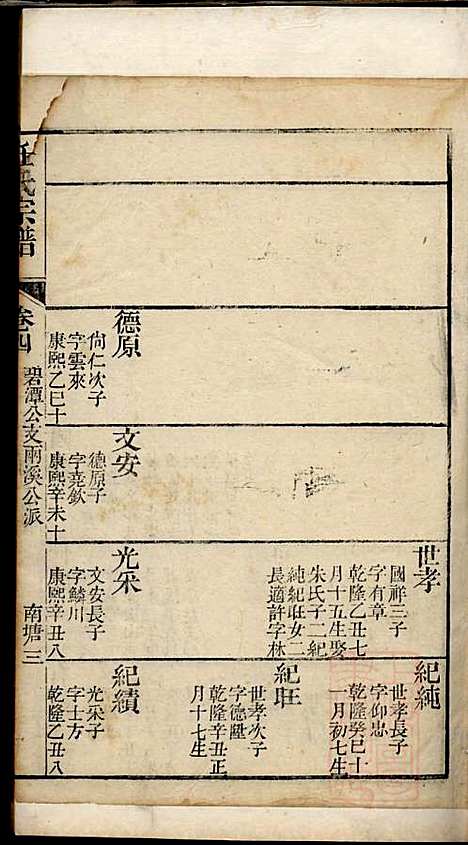 世孝
國祥三子
字有章
乾隆乙丑七
月十五生娶
朱氏子二紀
純紀旺女二
長適許字林
紀純
世孝長子
字仰忠
乾隆癸巳十
一月初七生
紀旺
世孝次子
乾隆辛丑正
月十七生
德原
尙仁次子
字雲來
康熙乙巳十
文安
德原子
字堯欽
康熙辛未十
光采
文安長子
字鱗川
康熙辛丑八
紀績
光采子
字士方
乾隆乙丑八
任氏宗譜
卷四
碧潭公支兩溪公派
南塘三